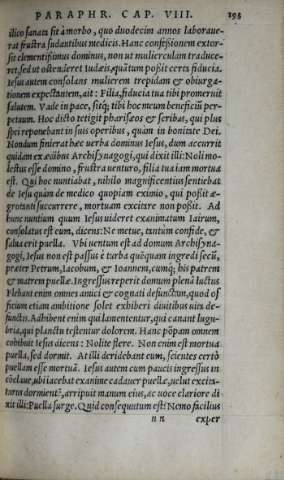 PARAPHR. CAP. VIII. 195
ilico sanata sit à morbo, quo duodecim annos laboraue-
rat frustra sudantibus medicis. Hanc confessionem extor-
sit clementissimus dominus, non ut mulierculam traduce-
ret, sed ut ostenderet Iudæis, quātum possit certa fiducia.
Iesus autem consolans mulierem trepidam, & obiurga-
tionem expectantem, ait: Filia, fiducia tua tibi promeruit
salutem. Vade in pace, sitq; tibi hoc meum beneficiū per-
petuum. Hoc dicto tetigit pharisæos & scribas, qui plus
spei reponebant in suis operibus, quàm in bonitate Dei.
Nondum finierat hæc uerba dominus Iesus, dum accurrit
quidam ex ædibus Archisynagogi, qui dixit illi: Noli mo-
lestus esse domino, frustra uenturo, filia tua iam mortua
est. Qui hoc nuntiabat, nihilo magnificentius sentiebat
de Iesu quàm de medico quopiam eximio, qui possit æ-
grotanti succurrere, mortuam excitare non possit. Ad
hunc nuntium quum Iesus uideret exanimatum Iairum,
consolatus est eum, dicens: Ne metue, tantùm confide, &
salua erit puella. Vbi uentum est ad domum Archisyna-
gogi, Iesus non est passus è turba quēquam ingredi secū,
præter Petrum, Iacobum, & Ioannem, cumq; his patrem
& matrem puellæ. Ingressus reperit domum plenā luctus
flebant enim omnes amici & cognati defunctam, quod of
ficium etiam ambitione solet exhiberi diuitibus uita de-
functis. Adhibent enim qui lamententur, qui canant lugu-
bria, qui planctu testentur dolorem. Hanc pōpam omnem
cohibuit Iesus dicens: Nolite flere. Non enim est mortua
puella, sed dormit. At illi deridebant eum, scientes certò
puellam esse mortuā. Iesus autem cum paucis ingressus in
cōclaue, ubi iacebat exanime cadauer puellæ, uelut excita-
turus dormientē, arripuit manum eius, ac uoce clariore di
xit illi: Puella surge. Quid consequutum est? Nemo facilius
n n exper